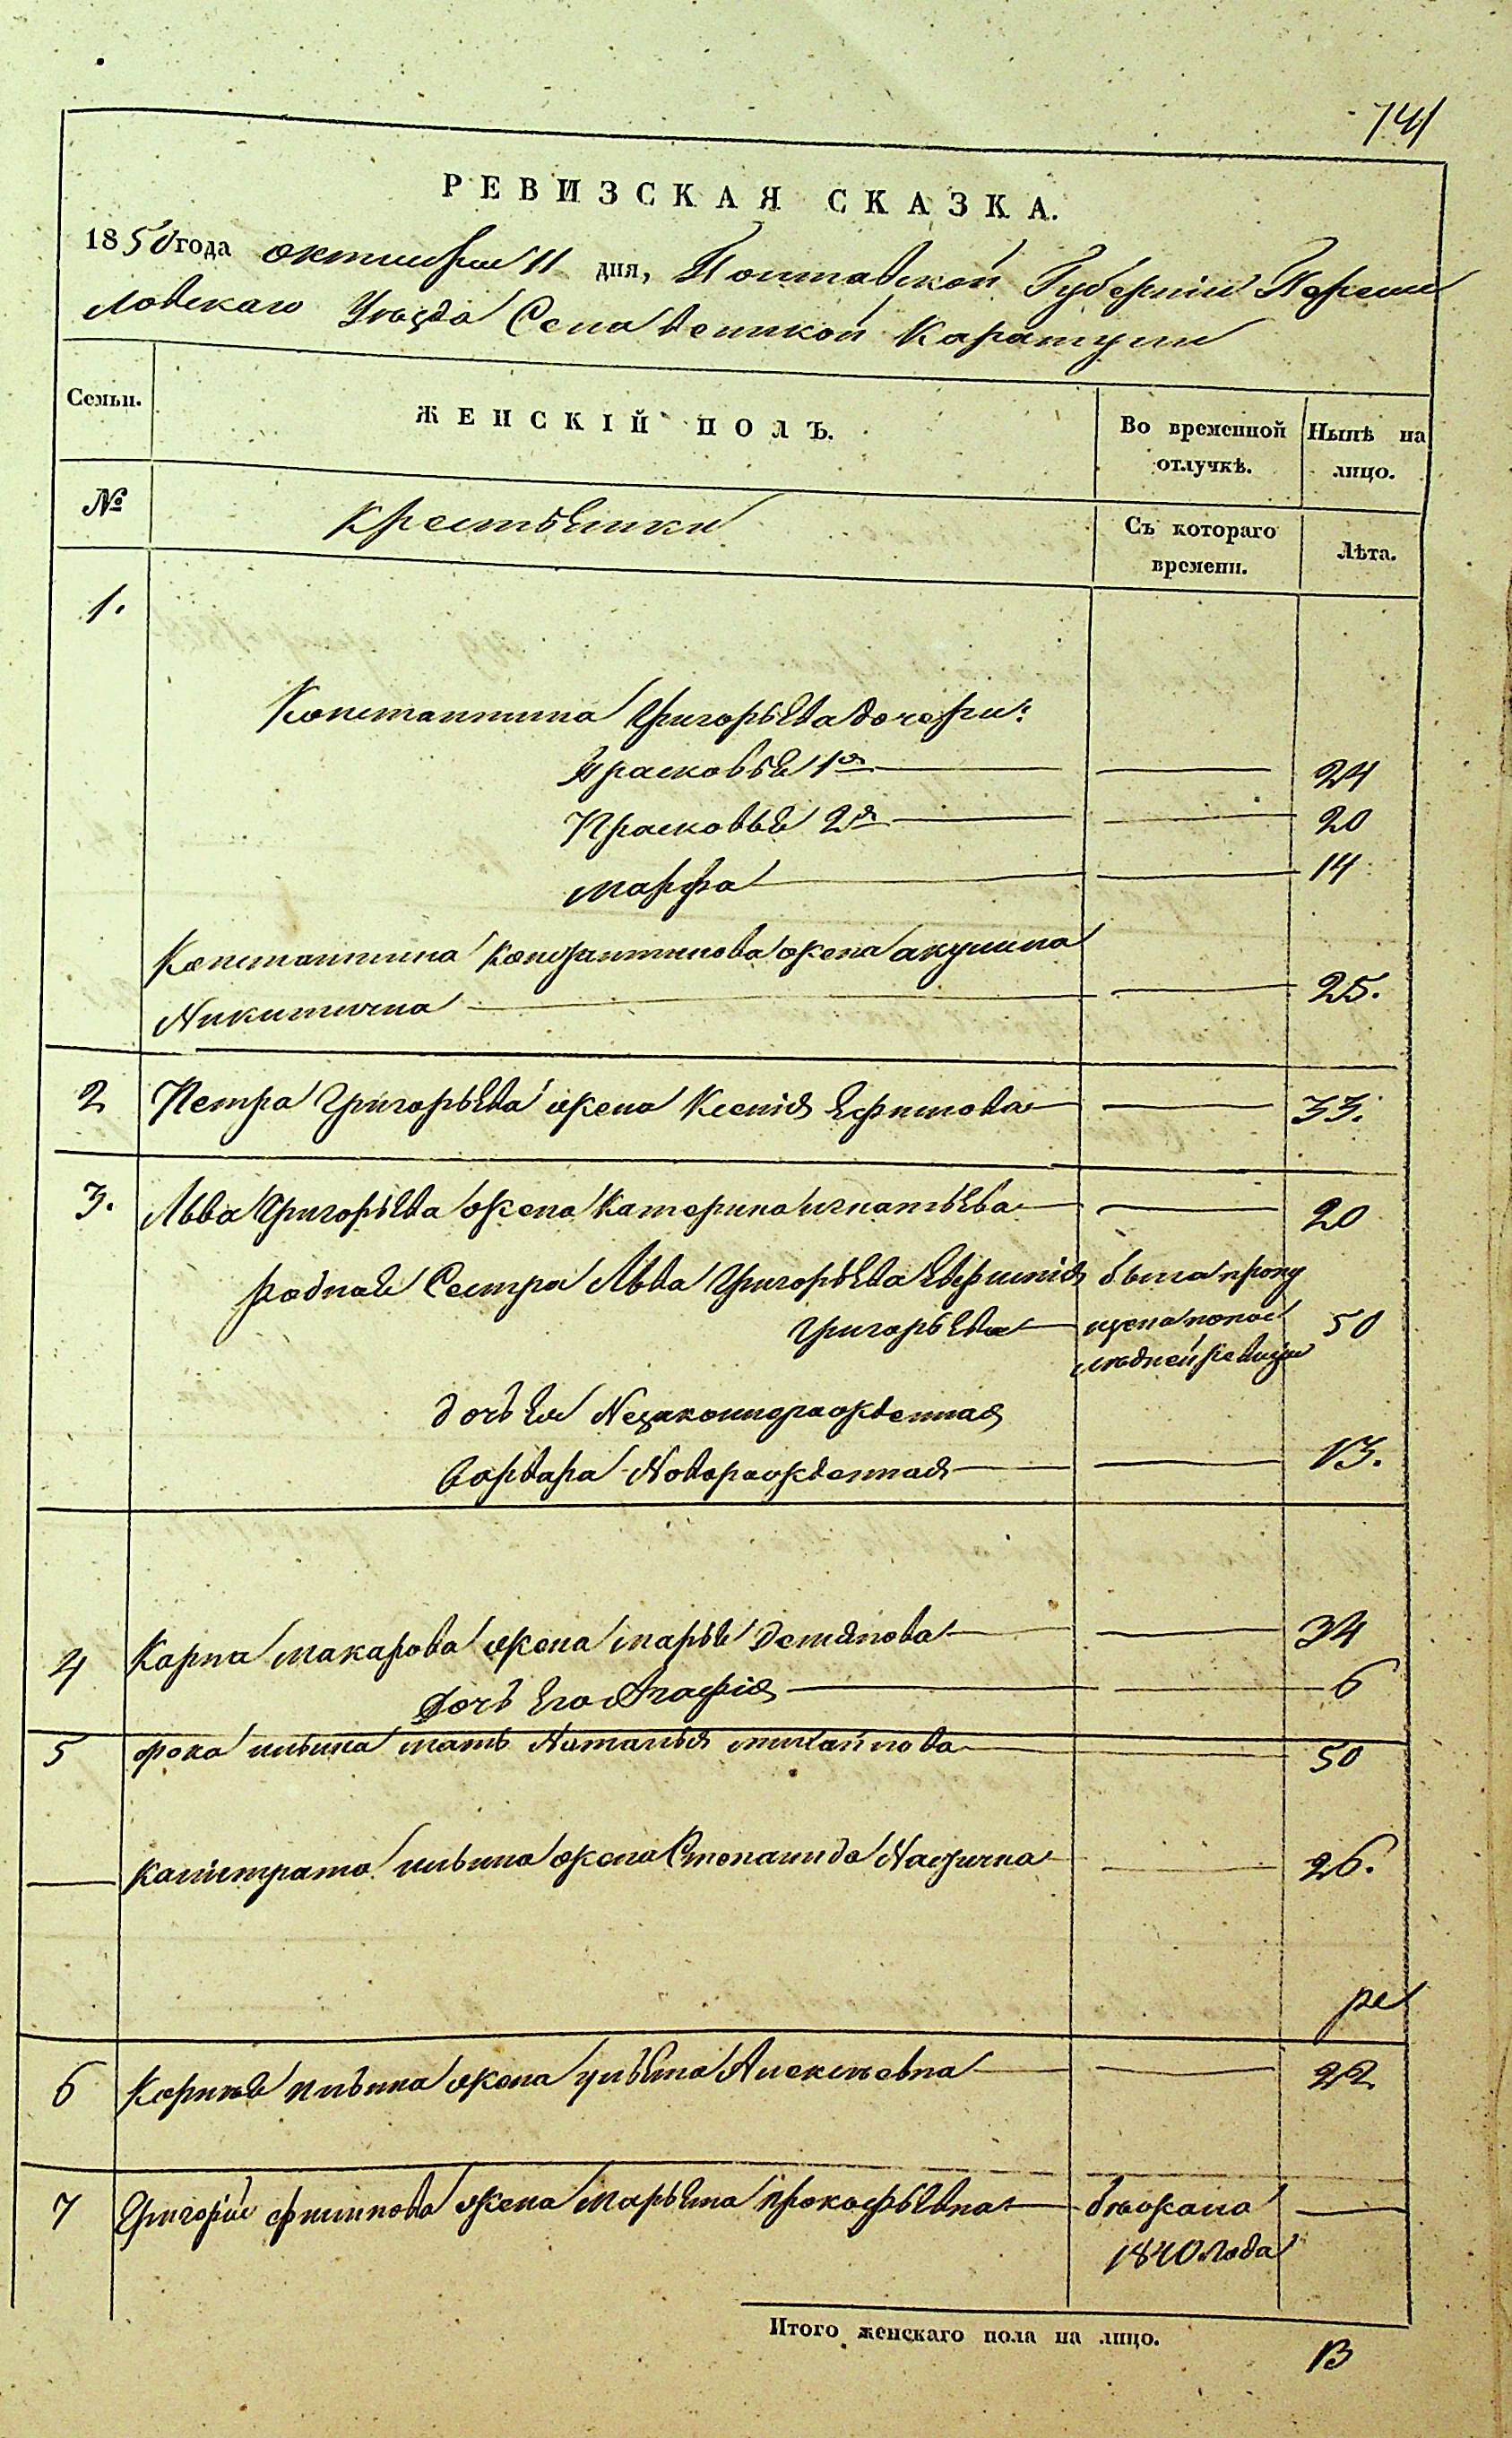 741
РЕВИЗСКАЯ СКАЗКА.
1850 года октября 11 дня, Полтавской Губерніи Переяс
ловскаго Уезда Села великой Каратули
Семьи. ЖЕНСКІЙ ПОЛЪ. Во временной отлучкѣ. Нынѣ на лицо.
№ Крестьянки Съ котораго времени. Лѣта.
1.
Константина Григорьева дочери:
Прасковья 1я 24
Прасковья 2я 20
Марфа 14
Константина Константинова жена акулина
Никитична 25.
2 Петра Григорьева жена Ксенія Ефимова 33.
3. Льва Григорьева жена Катерина игнатьева 20
родная Сестра Льва Григорьева Евфимія была пропу
Григорьева щена попос 50
лѣдней ревизіи
дочь Ея Незаконнорожденная
Варвара Новорожденная 13.
4 Карпа макарова жена марья демянова 34
Дочь Его Агафія 6
5 фока ильина мать Наталья михайлова 50
калистрата ильина жена Степанида 26.
ре
6 Корнѣя ильина жена ульяна Алексѣевна 22
7 Григорія филипова жена Марьяна прокофьевна бѣжала
1840 года
Итого женскаго пола на лицо. 13